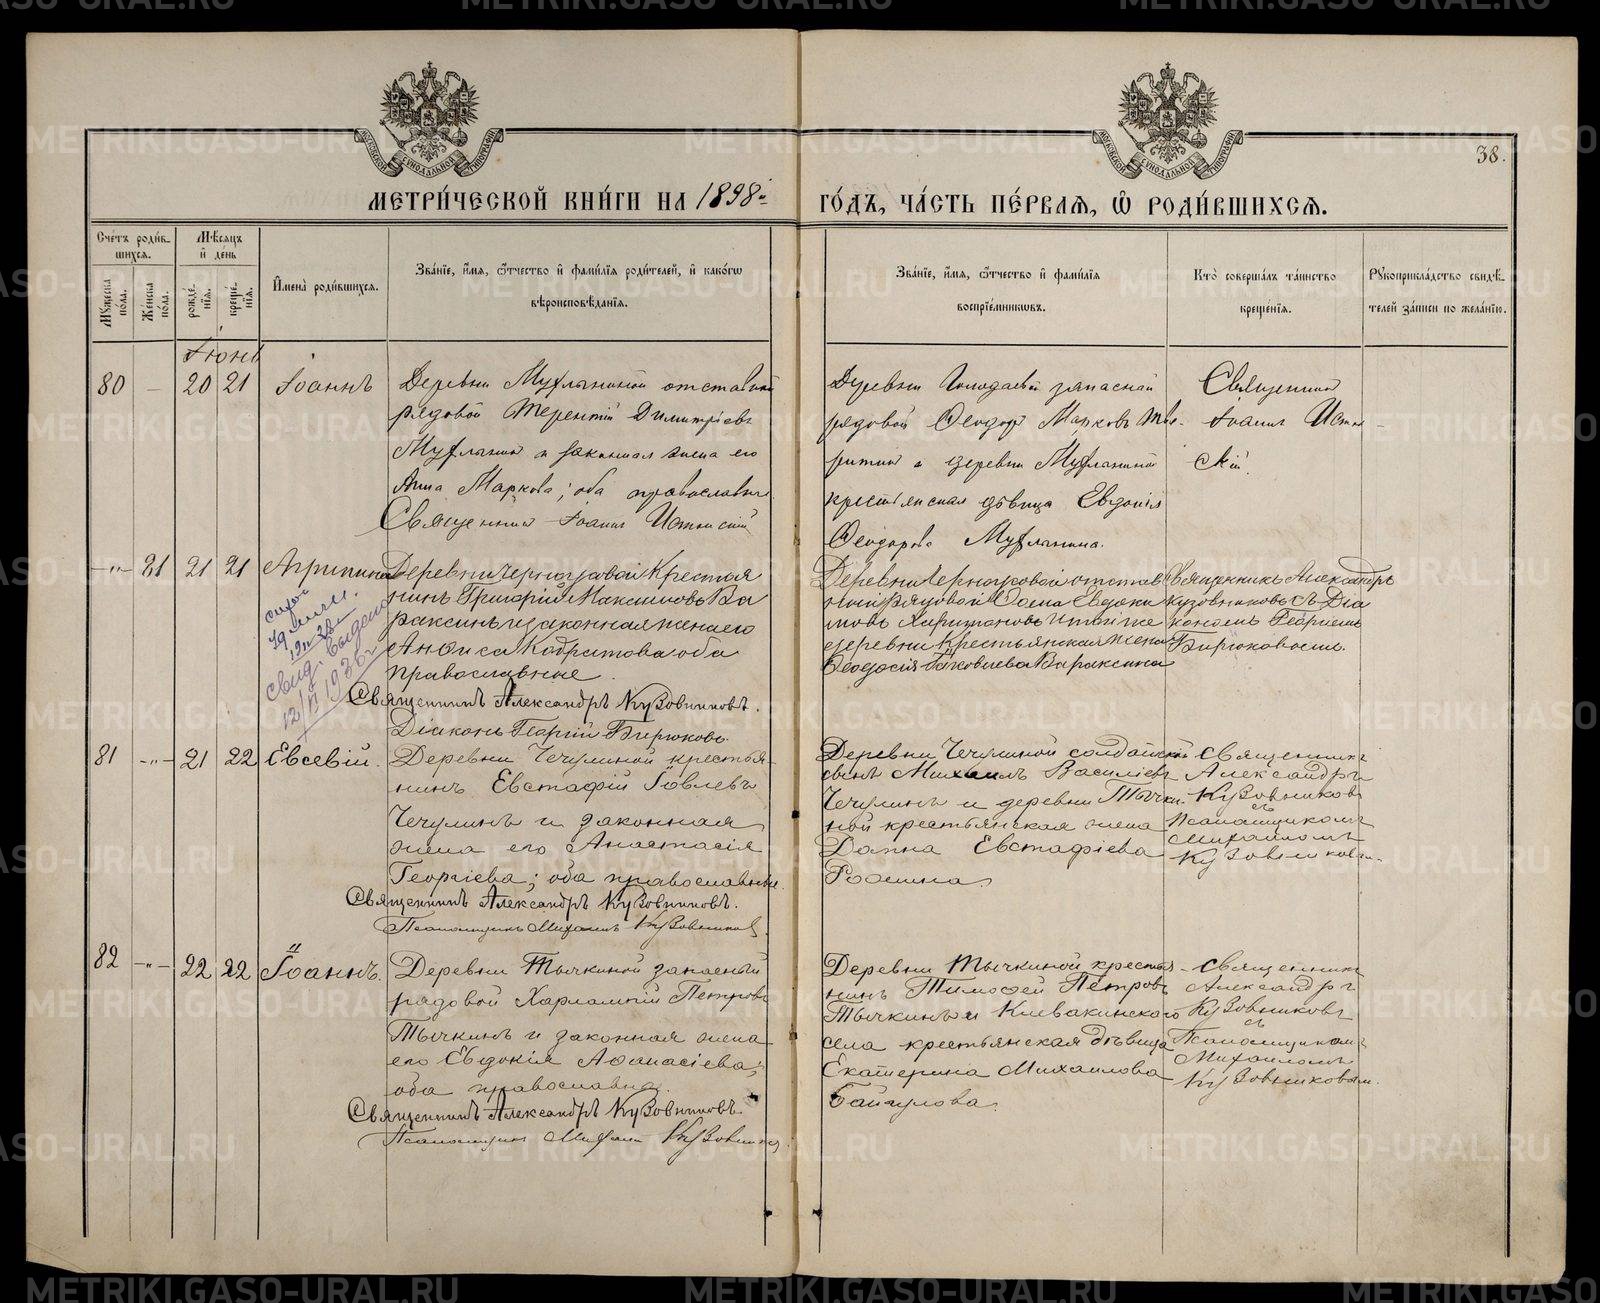 МЕТРИ́ЧЕСКОЙ КНИ́ГИ НА 1898й
ГО́ДЪ, ЧА́СТЬ ПЕ́РВАѦ, Ѡ РОДИ́ВШИХСѦ.
38.
Сче́тъ роди́в-
шихсѧ.
Мѣ́сѧцъ
и҆ де́нь
Мꙋ́жеска
по́ла.
Же́нска
по́ла.
рожде́-
нїѧ.
креще́-
нїѧ.
И҆мена̀ роди́вшихсѧ.
Зва́нїе, и҆́мѧ, ѻ҆́тчество и҆ фами́лїѧ роди́телей, и҆ како́гѡ
вѣроисповѣ́данїѧ.
Зва́нїе, и҆́мѧ, ѻ҆́тчество и҆ фами́лїѧ
воспрїе́мникѡвъ.
Кто̀ соверша́лъ та́инство
креще́нїѧ.
Рꙋкоприкла́дство свидѣ́-
телей за́писи по жела́нїю.
Іюнь
80 – 20 21 Іоаннъ
Деревни Мухлыниной отставной
рядовой Терентій Димитріевъ
Мухлынинъ и законная жена его
Анна Маркова; оба православные
Священникъ Іоаннъ
Деревни запасной
рядовой Ѳеодоръ Марковъ
и деревни Мухлыниной
крестьянская дѣвица Евдокія
Ѳеодорова Мухлынина.
Священникъ
Іоаннъ
скій.
–"– 81 21 21 Агрипина
Деревни Черноусовой Крестья
нинъ Григорій Максимовъ Ва
раксинъ и законная жена его
Анѳиса Кодратова оба
православные.
Священникъ Александръ Кузовниковъ.
Діаконъ Георгій Бирюковъ
свид. выдано
12/VI 1936г
Деревни Черноусовой отстав
ной рядовой Евдоки
мовъ Харитоновъ и той же
деревни Крестьянская жена
Ѳеодосія Іаковлева Вараксина
Священникъ Александръ
Кузовниковъ съ Діа
кономъ Георгіемъ
Бирюковымъ.
81 –"– 21 22 Евсевій.
Деревни Чечулиной крестья-
нинъ Евстафій Іовлевъ
Чечулинъ и законная
жена его Анастасія
Георгіева; оба православные.
Священникъ Александръ Кузовниковъ.
Псаломщикъ Михаилъ Кузовниковъ
Деревни Чечулиной солдатскій
сынъ Михаилъ Василіевъ
Чечулинъ и деревни Тычки-
ной крестьянская жена
Домна Евстафіева
Фомина.
Священникъ
Александръ
Кузовниковъ
съ
Псаломщикомъ
Михаиломъ
Кузовниковы-
82 –"– 22 22 Іоаннъ.
Деревни Тычкиной запасный
рядовой Харлампій Петровъ
Тычкинъ и законная жена
его Евдокія Аѳанасіева;
оба православна.
Священникъ Александръ Кузовниковъ.
Псаломщикъ Михаилъ Кузовниковъ
Деревни Тычкиной крестья-
нинъ Тимоѳей Петровъ
Тычкинъ и Клевакинскаго
села крестьянская дѣвица
Екатерина Михаилова
Байгулова.
Священникъ
Александръ
Кузовниковъ
съ
Псаломщикомъ
Михаиломъ
Кузовниковым.
METRIKI.GASO-URAL.RU